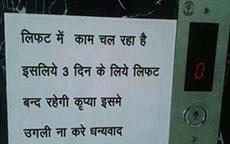 लिफट में काम चल रहा है
इसलिये 3 दिन के लिये लिफट
बन्द रहेगी कृप्या इसमे
उगली ना करे धन्यवाद
0